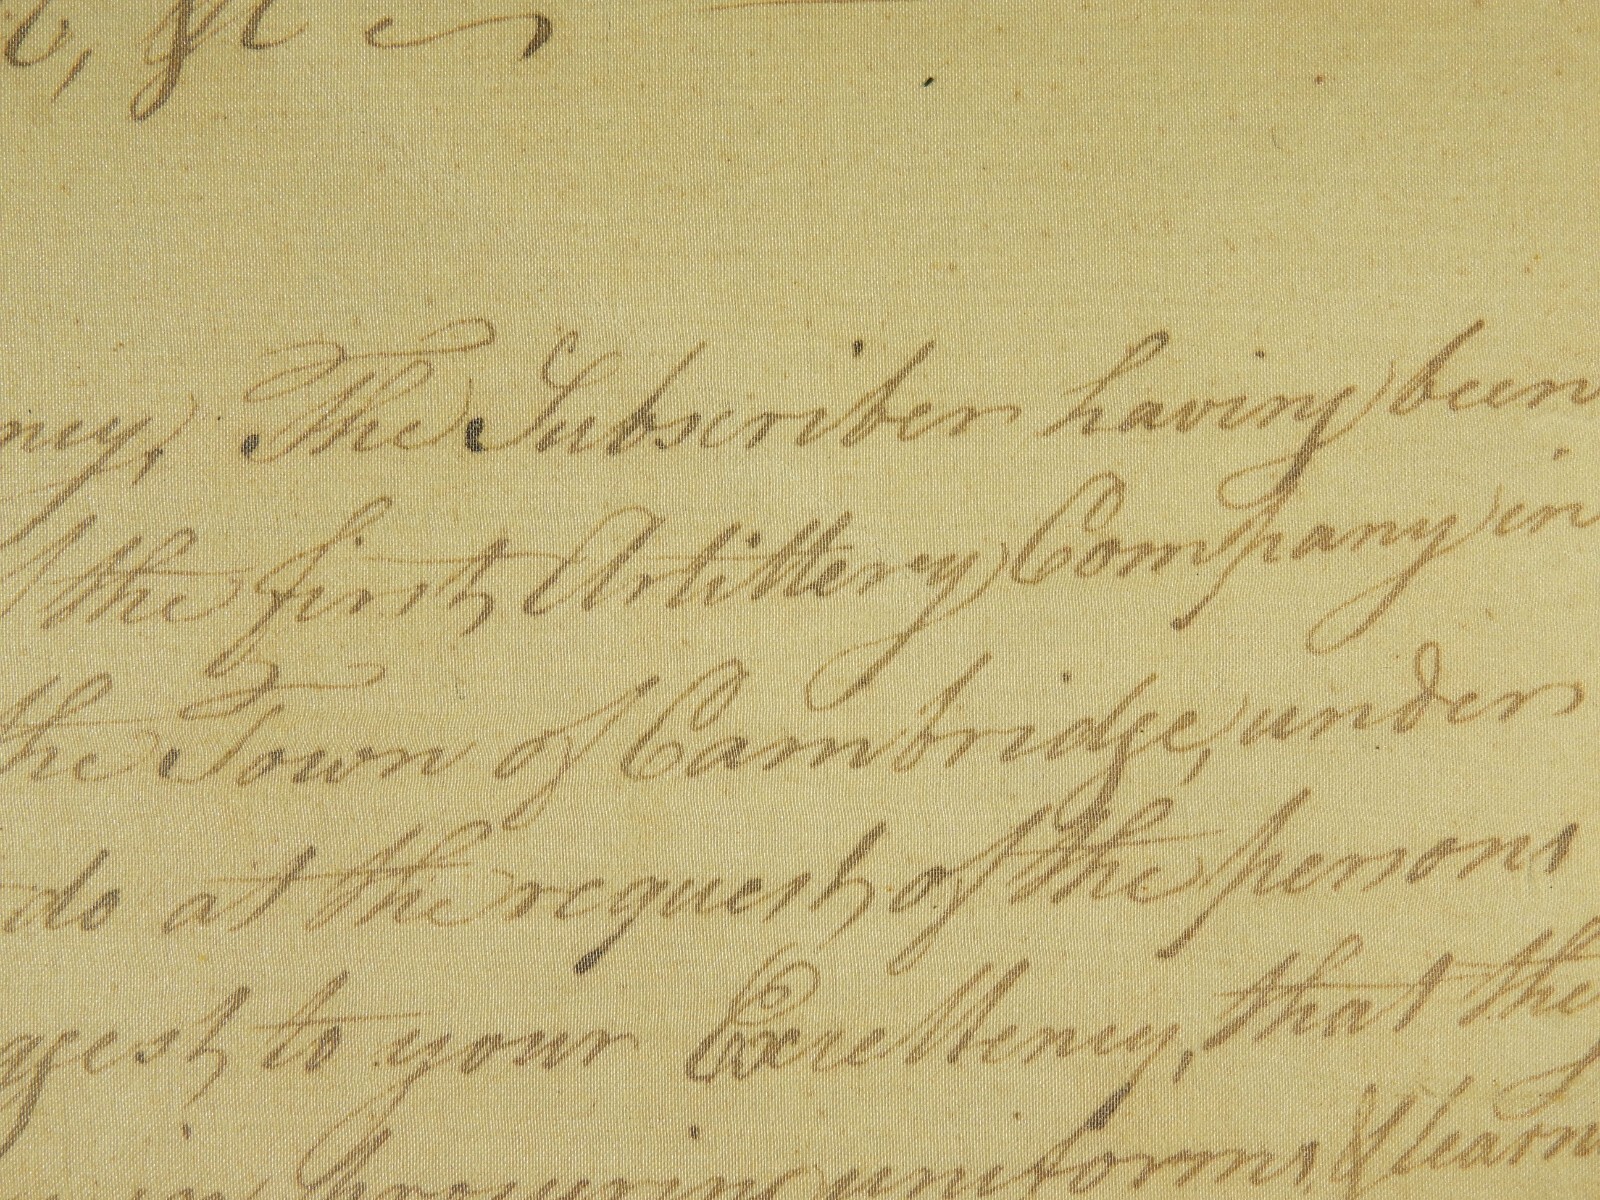 &c
ncy, The Subscriber having been
the first Artillery Company in
the Town of Cambridge, under
do at the request of the persons
ggest to your Excellency, that the
in procuring uniforms & learn